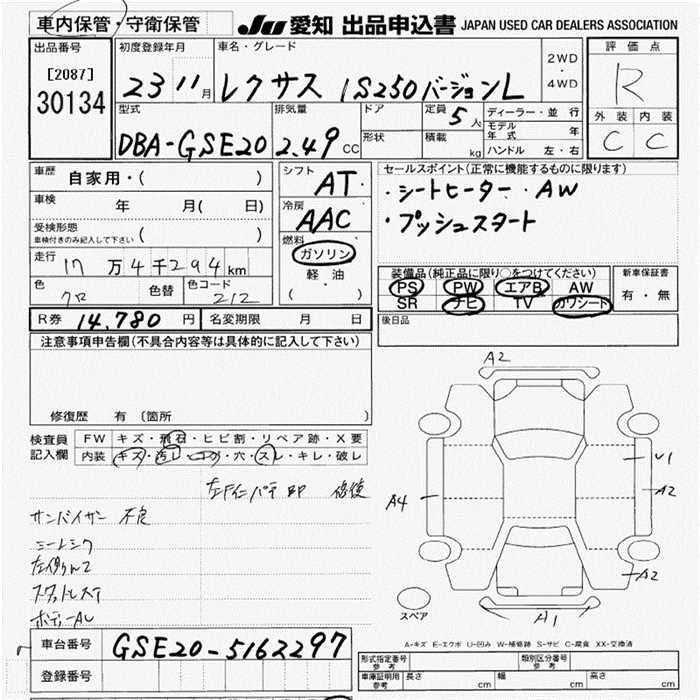 車内保管・守衛保管 JU 愛知 出品申込書 JAPAN USED CAR DEALERS ASSOCIATION
出品番号 初度登録年月 車名・グレード 評価点
[2087] 23 11月 レクサス IS250 バージョンL 2WD・4WD R
30134
型式 排気量 ドア 定員 5人 ディーラー・並行 外装 内装
モデル年式 年
DBA-GSE20 2.49CC 形状 積載 kg ハンドル 左・右 C C
車歴 自家用・( ) シフト AT セールスポイント(正常に機能するものに限ります)
車検 年 月( 日) 冷房 AAC ・シートヒーター・AW
受検形態 ・プッシュスタート
車検付きのみ記入して下さい ( )
燃料 ガソリン
走行 17万4千294km 軽油 装備品(純正品に限り○をつけてください) 新車保証書
色 クロ 色替 色コード 212 ( ) PS PW エアB AW 有・無
SR ナビ TV カワシート
R券 14,780円 名変期限 月 日 後日品
注意事項申告欄(不具合内容等は具体的に記入して下さい)
A2
修復歴 有 (箇所
検査員 FW キズ・飛石・ヒビ割・リペア跡・X要
記入欄 内装 キズ・汚レ・コゲ・穴・スレ・キレ・破レ
V1
A4 A2
サンバイザー 不良
A2
スペア A1
A-キズ E-エクボ U-凹み W-補修跡 S-サビ C-腐食 XX-交換済
車台番号 GSE20-5162297
登録番号
形式指定番号 参考 類別区分番号 参考
車庫証明用 参考 長さ cm 幅 cm 高さ cm